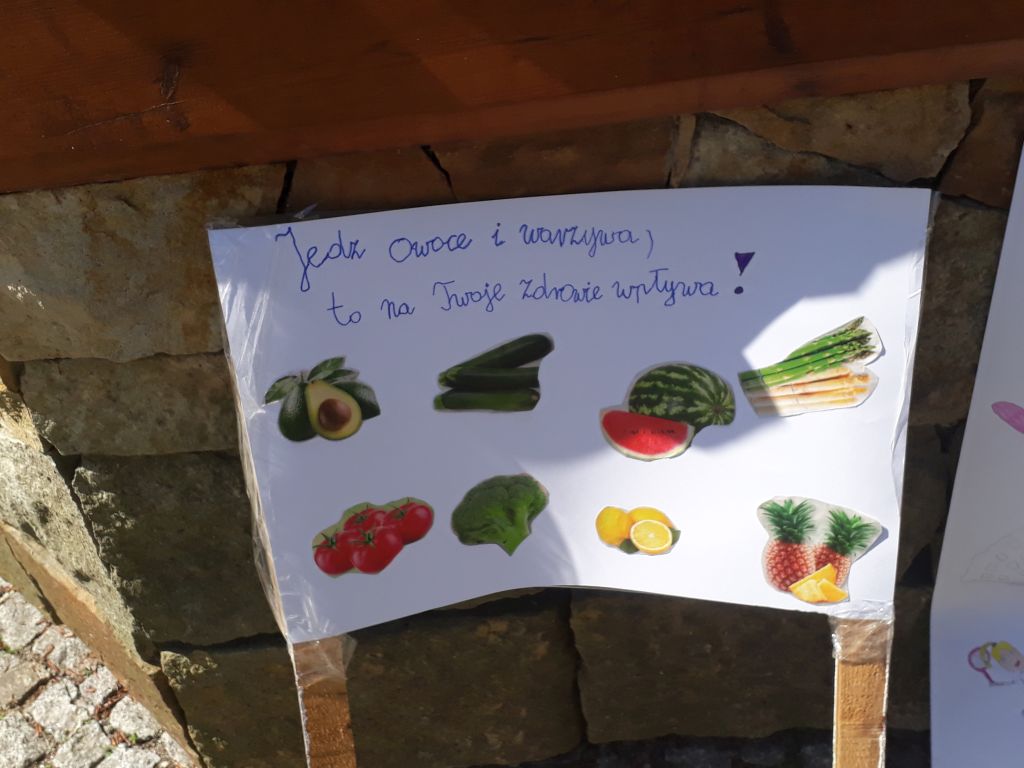 Jedz owoce i warzywa,
to na Twoje zdrowie wpływa!